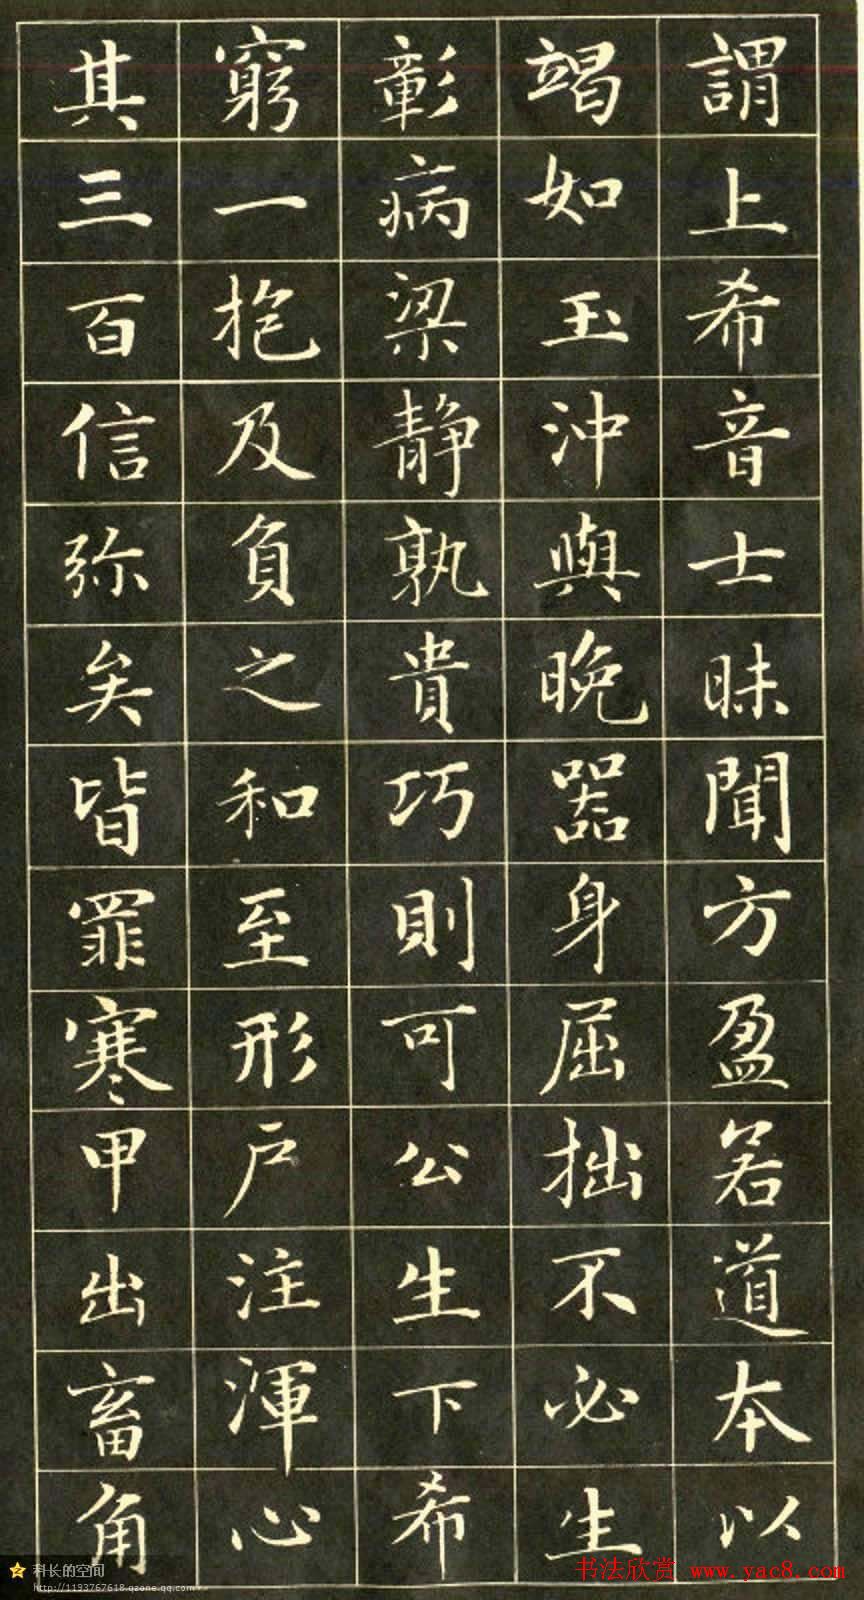 謂上希音士昧聞方盈若道本以
竭如玉沖與晚器身屈拙不必生
彰病梁静孰貴巧則可公生下希
窮一抱及負之和至形戶注渾心
其三百信弥矣皆罪寒甲出畜角
科长的空间
http://1193767618.qzone.qq.com
书法欣赏 www.yac8.com